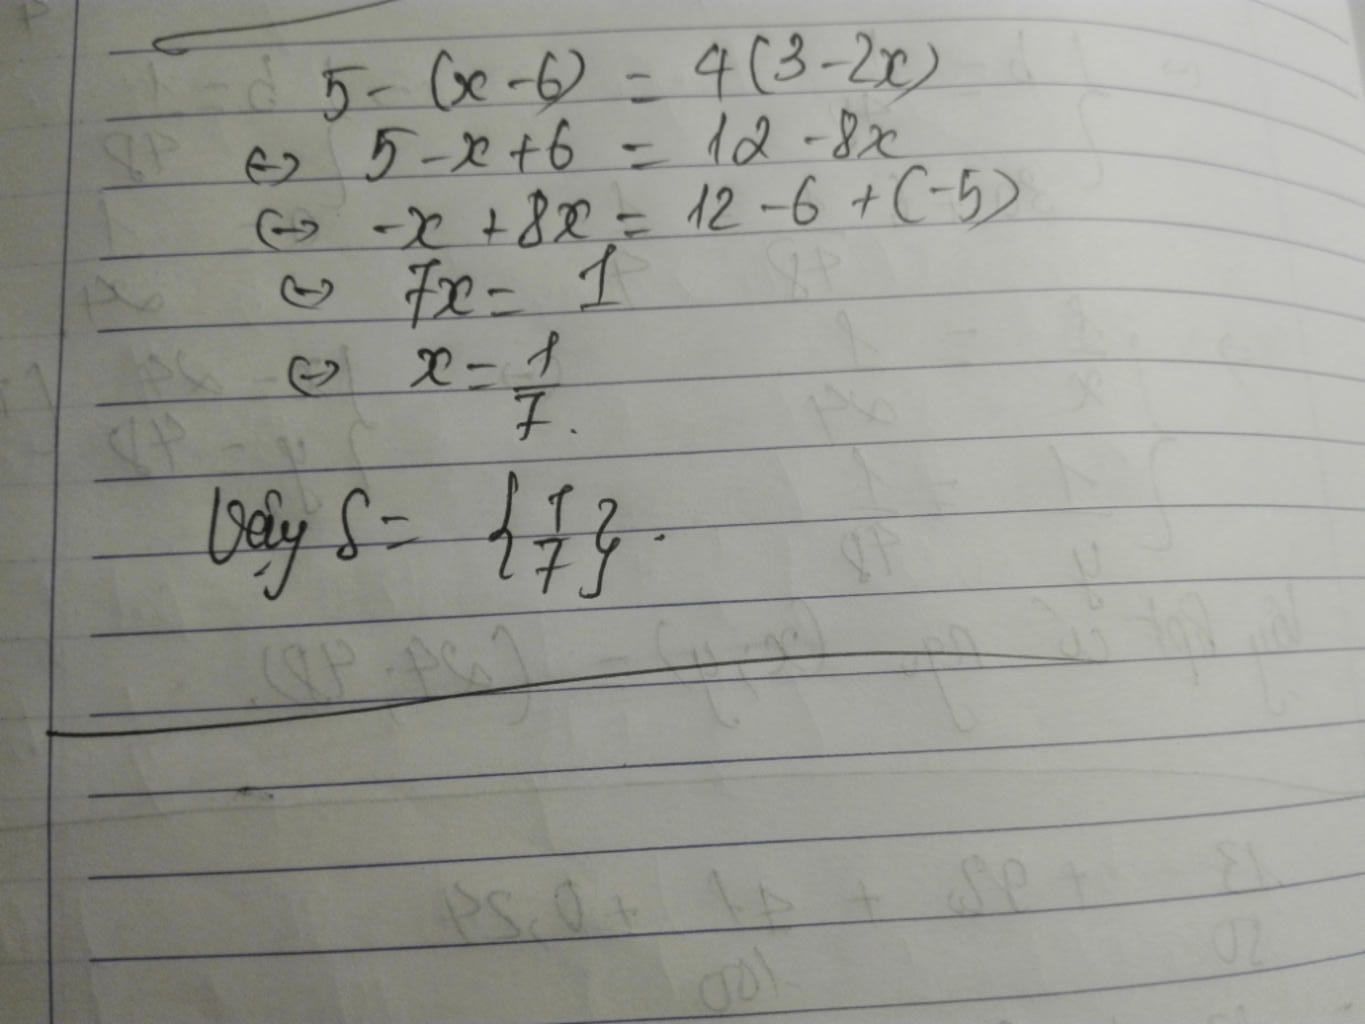 5 - (x - 6) = 4(3 - 2x)
⇔ 5 - x + 6 = 12 - 8x
⇔ -x + 8x = 12 - 6 + (-5)
⇔ 7x = 1
⇔ x = 1/7.
Vậy S = {1/7}.